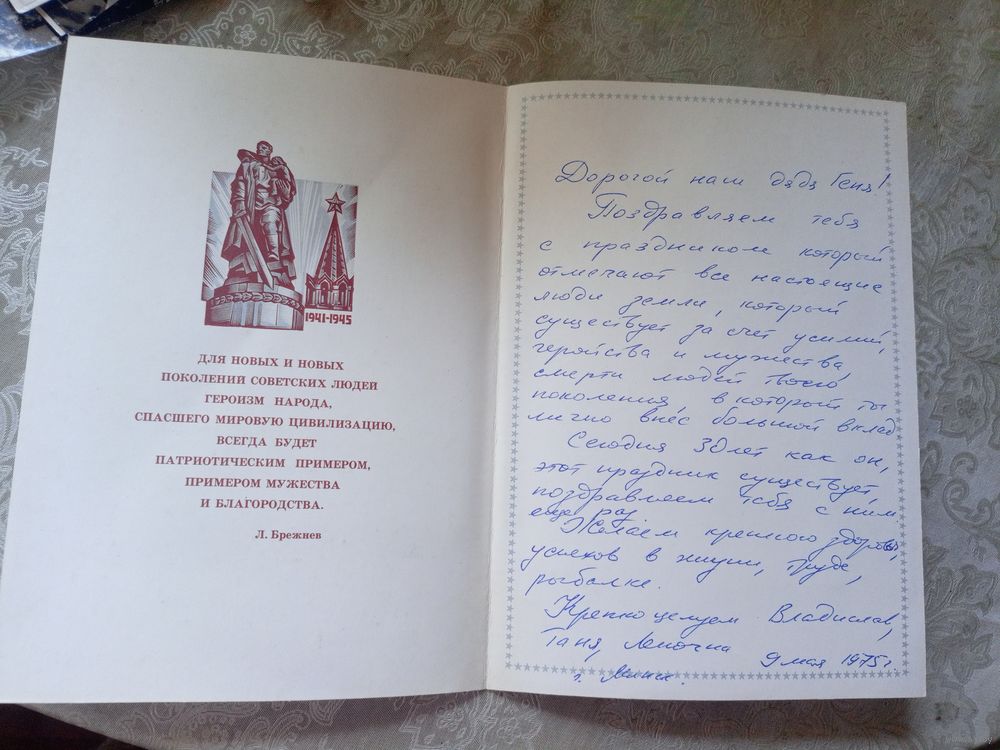 1941-1945
ДЛЯ НОВЫХ И НОВЫХ
ПОКОЛЕНИЙ СОВЕТСКИХ ЛЮДЕЙ
ГЕРОИЗМ НАРОДА,
СПАСШЕГО МИРОВУЮ ЦИВИЛИЗАЦИЮ,
ВСЕГДА БУДЕТ
ПАТРИОТИЧЕСКИМ ПРИМЕРОМ,
ПРИМЕРОМ МУЖЕСТВА
И БЛАГОРОДСТВА.
Л. Брежнев
Дорогой наш дядя Гена!
Поздравляем тебя
с праздником который
отмечают все настоящие
люди земли, который
существует за счет усилий,
геройства и мужества,
смерти людей твоего
поколения в который ты
лично внёс большой вклад
Сегодня 30 лет как он,
этот праздник существует,
поздравляем тебя с ним
еще раз.
Желаем крепкого здоровья,
успехов в жизни, труде,
рыбалке.
Крепко целуем Владислав,
Таня, Леночка
9 мая 1975 г.
г. Минск.